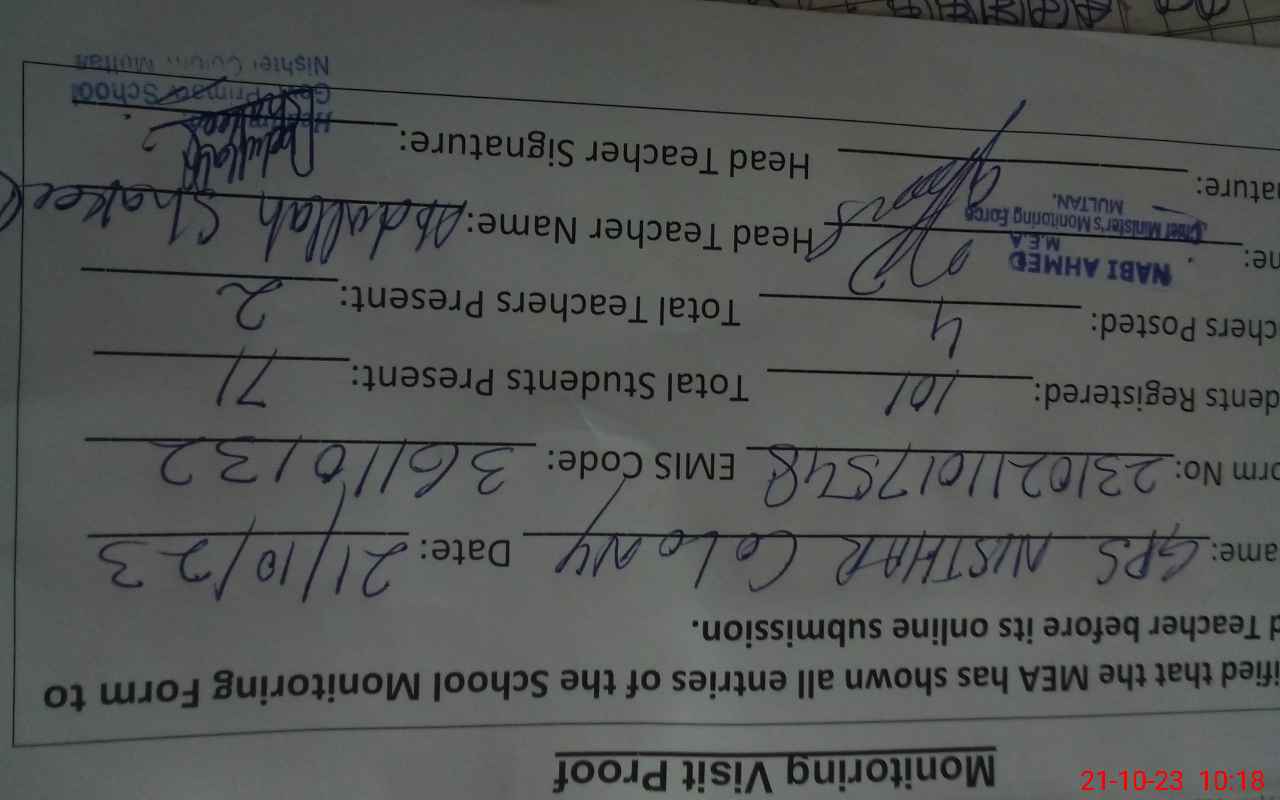 Monitoring Visit Proof
ified that the MEA has shown all entries of the School Monitoring Form to
d Teacher before its online submission.
ame: GPS NISTHAR COLONY Date: 21/10/23
orm No: 2310211017548 EMIS Code: 36110132
dents Registered: 101 Total Students Present: 71
chers Posted: 4 Total Teachers Present: 2
NABI AHMED
M.E.A
me: Head Teacher Name: Abdullah Shakeel
Chief Minister's Monitoring Force
MULTAN.
ature: Head Teacher Signature:
Primary School
Nishter Colony Multan
21-10-23 10:18